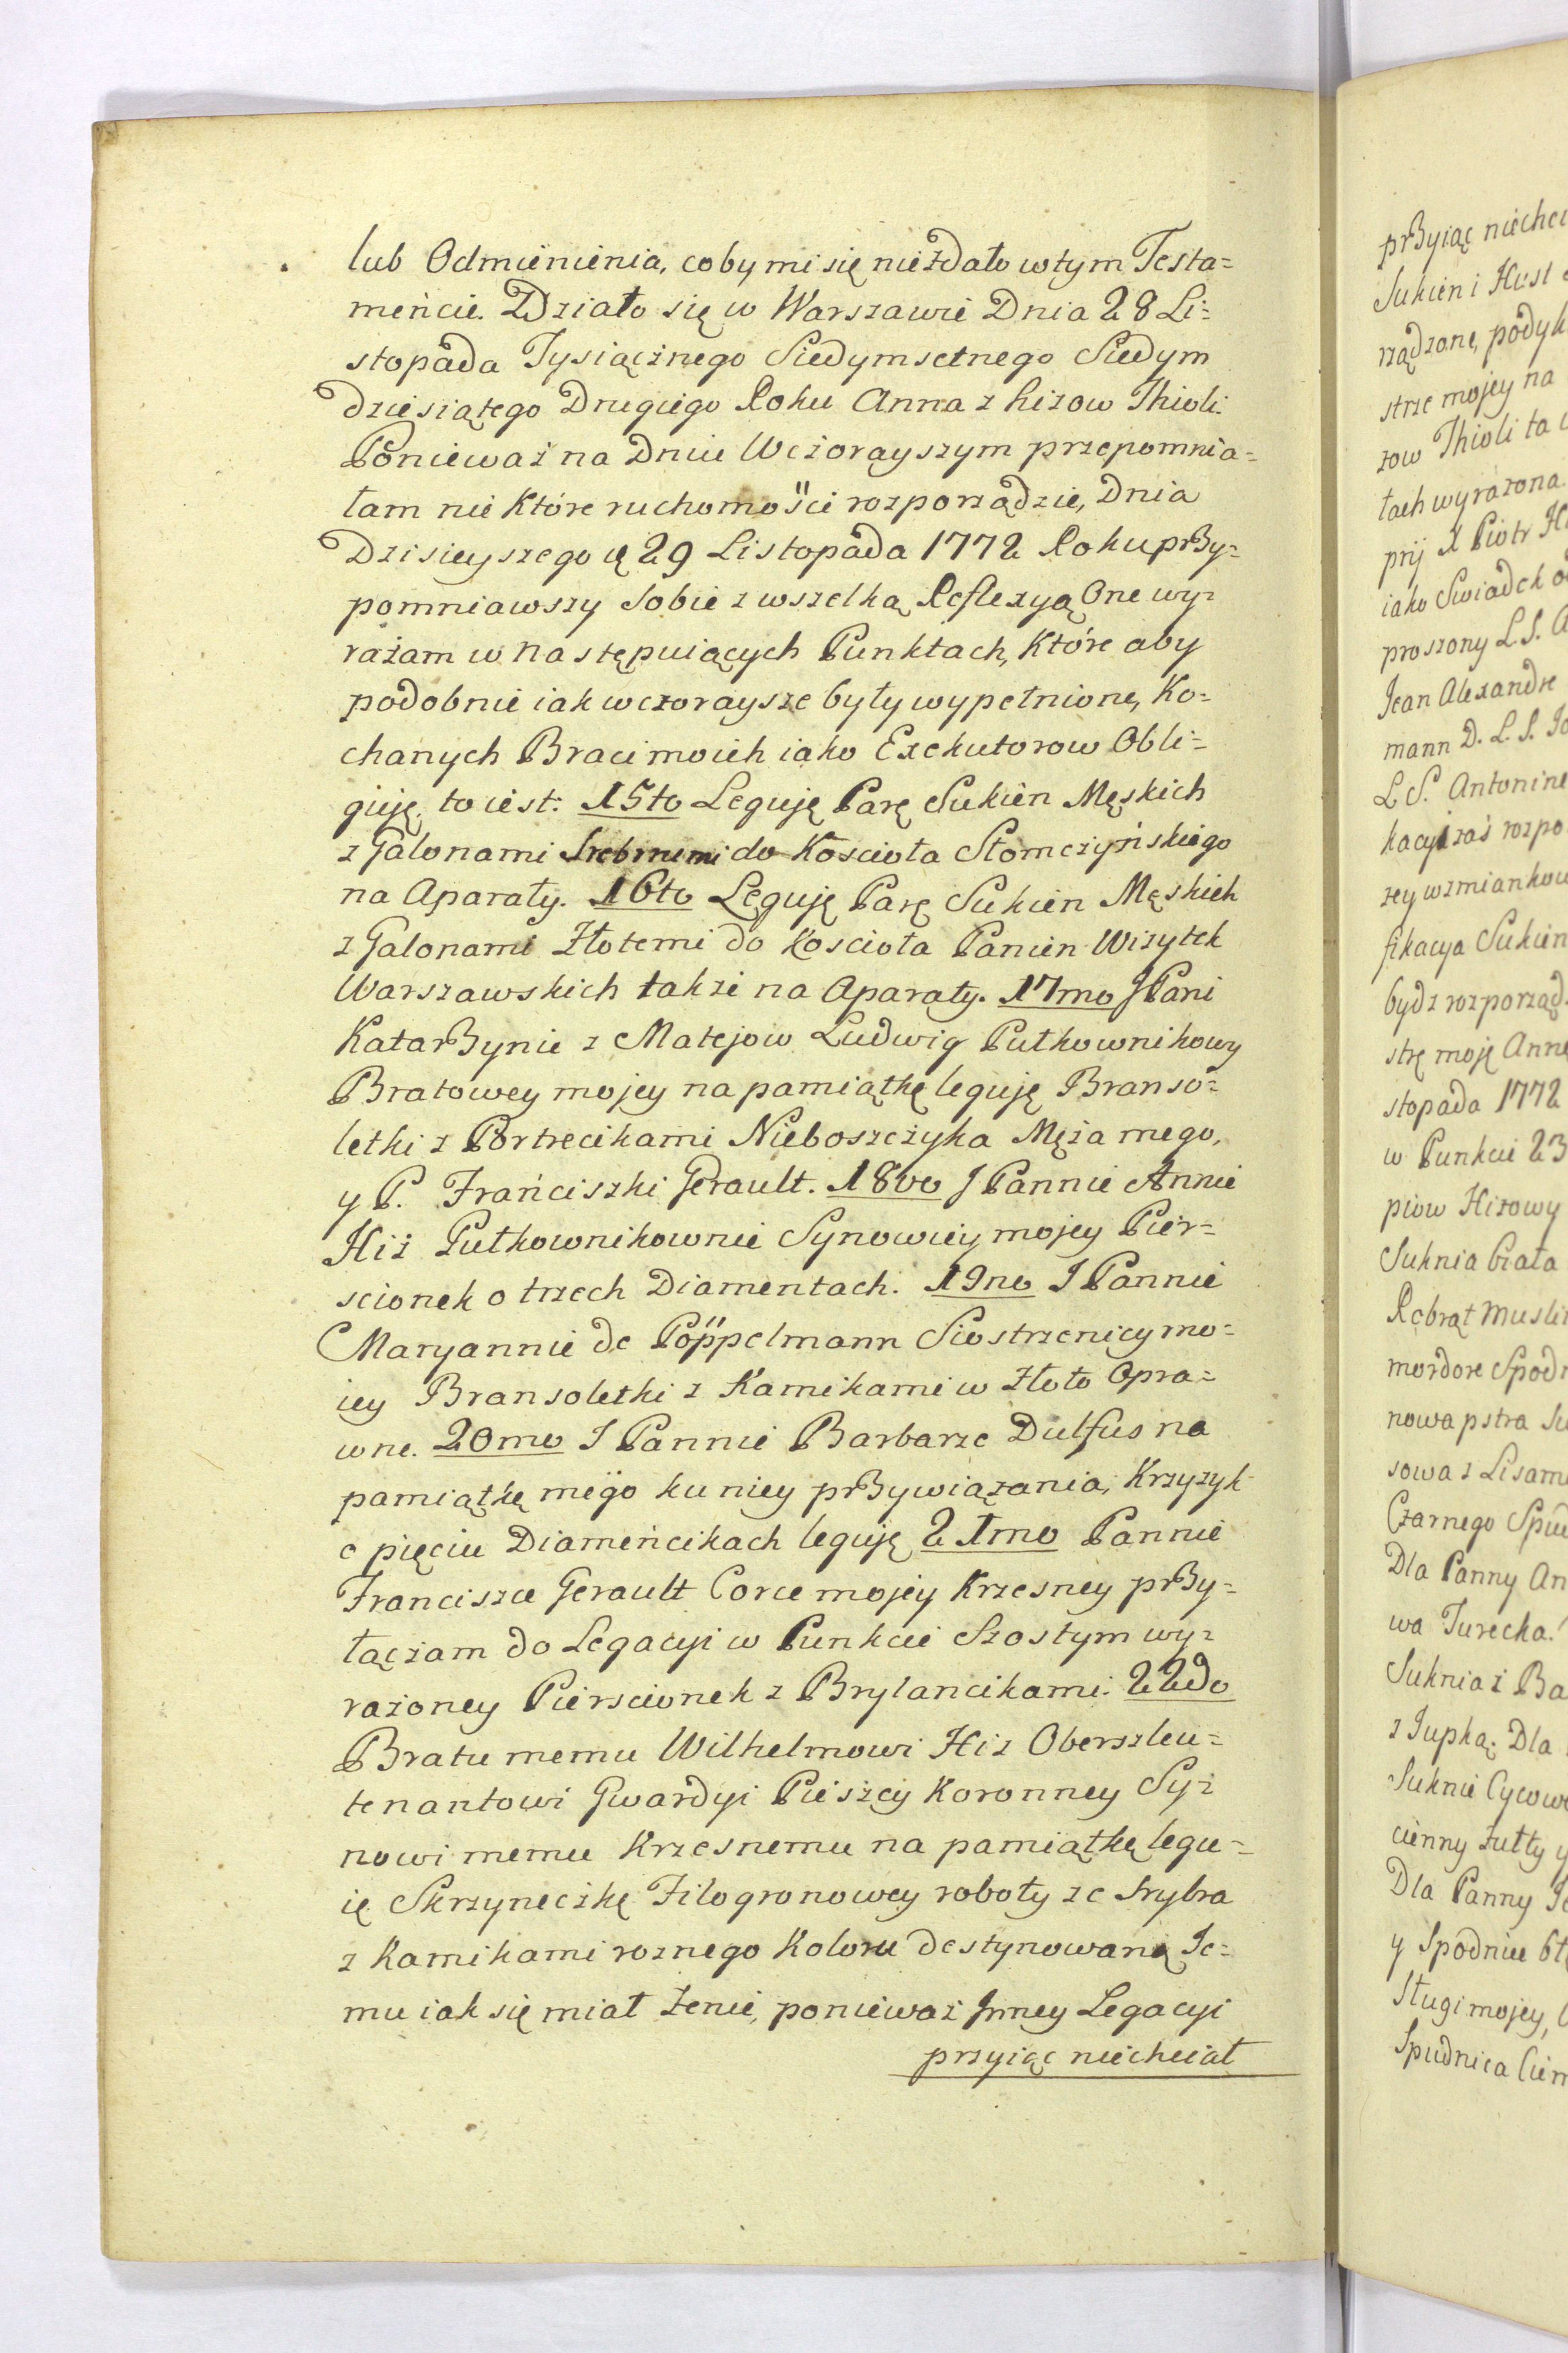 lub Odmienienia, coby mi się nie zdało w tym Testa=
mencie. Działo się w Warszawie Dnia 28 Li=
stopada Tysiącznego Siedymsetnego Siedym
dziesiątego Drugiego Roku Anna z Hizow Thioli.
Ponieważ na Dniu Wczorayszym przepomnia=
łam nie które ruchomości rozporządzic, Dnia
Dzisieyszego ię 29 Listopada 1772 Roku przy=
pomniawszy sobie z wszelką Reflexyą One wy=
rażam w następuiących Punktach, które aby
podobnie iak wczoraysze były wypełnione, Ko=
chanych Braci moich iako Exekutorow Obli=
guję, to iest: 15to Leguję Parę Sukien Męskich
z Galonami Srebrnemi do Koscioła Słomczyńskiego
na Aparaty. 16to Leguję Parę Sukien Męskich
z Galonami Złotemi do Koscioła Panien Wizytek
Warszawskich także na Aparaty. 17mo J Pani
Katarzynie z Matejow Ludwig Pułkownikowy
Bratowey mojey na pamiątkę leguję Branso=
letki z Portrecikami Nieboszczyka Męża mego,
y P. Franciszki Gerault. 18vo J Pannie Annie
Hiż Pułkownikownie Synowiey mojey Pier=
scionek o trzech Diamentach. 19no J Pannie
Maryannie de Pöppelmann Siostrzenicy mo=
iey Bransoletki z Kamikami w Złoto Opra=
wne. 20mo J Pannie Barbarze Dulfus na
pamiątkę mego ku niey przywiązania, Krzyzyk
o pięciu Diamencikach leguję 21mo Pannie
Franciszce Gerault Corce mojey Krzesney przy=
łączam do Legacyi w Punkcie Szostym wy=
rażoney Pierscionek z Brylancikami. 22do
Bratu memu Wilhelmowi Hiz Oberszleu=
tenantowi Gwardyi Pieszey Koronney Sy=
nowi memu Krzesnemu na pamiątkę legu=
ię Skrzyneczkę Filogronowey roboty ze Srybra
z Kamikami roznego Koloru destynowaną Je=
mu iak się miał żenić, ponieważ Jnney Legacyi
przyiąc niechciał
przyiąc niechci
Sukien i Hust
rządzone, podyk
strze mojey na
zow Thioli ta
tach wyrażona.
prij X Piotr
iako Swiadek
proszony L.S.
Jean Alexandre
mann D. L. S.
L S. Antonine
kacyi zaś rozpo
zey wzmiankow
fikacya Sukien
bydz rozporząd
strę moję Annę
stopada 1772
w Punkcie 23
piow Hizowy
Suknia Biała
Rąbrąt Muslin
mordore Spodn
nowa pstra Su
sowa z Lisam
Czarnego
Dla Panny An
wa Turecka.
Suknia z Ba
z Jupką. Dla
Suknie Cycowe
cienny żułty y
Dla Panny
y Spodnice
Sługi mojey,
Spudnica Ciem